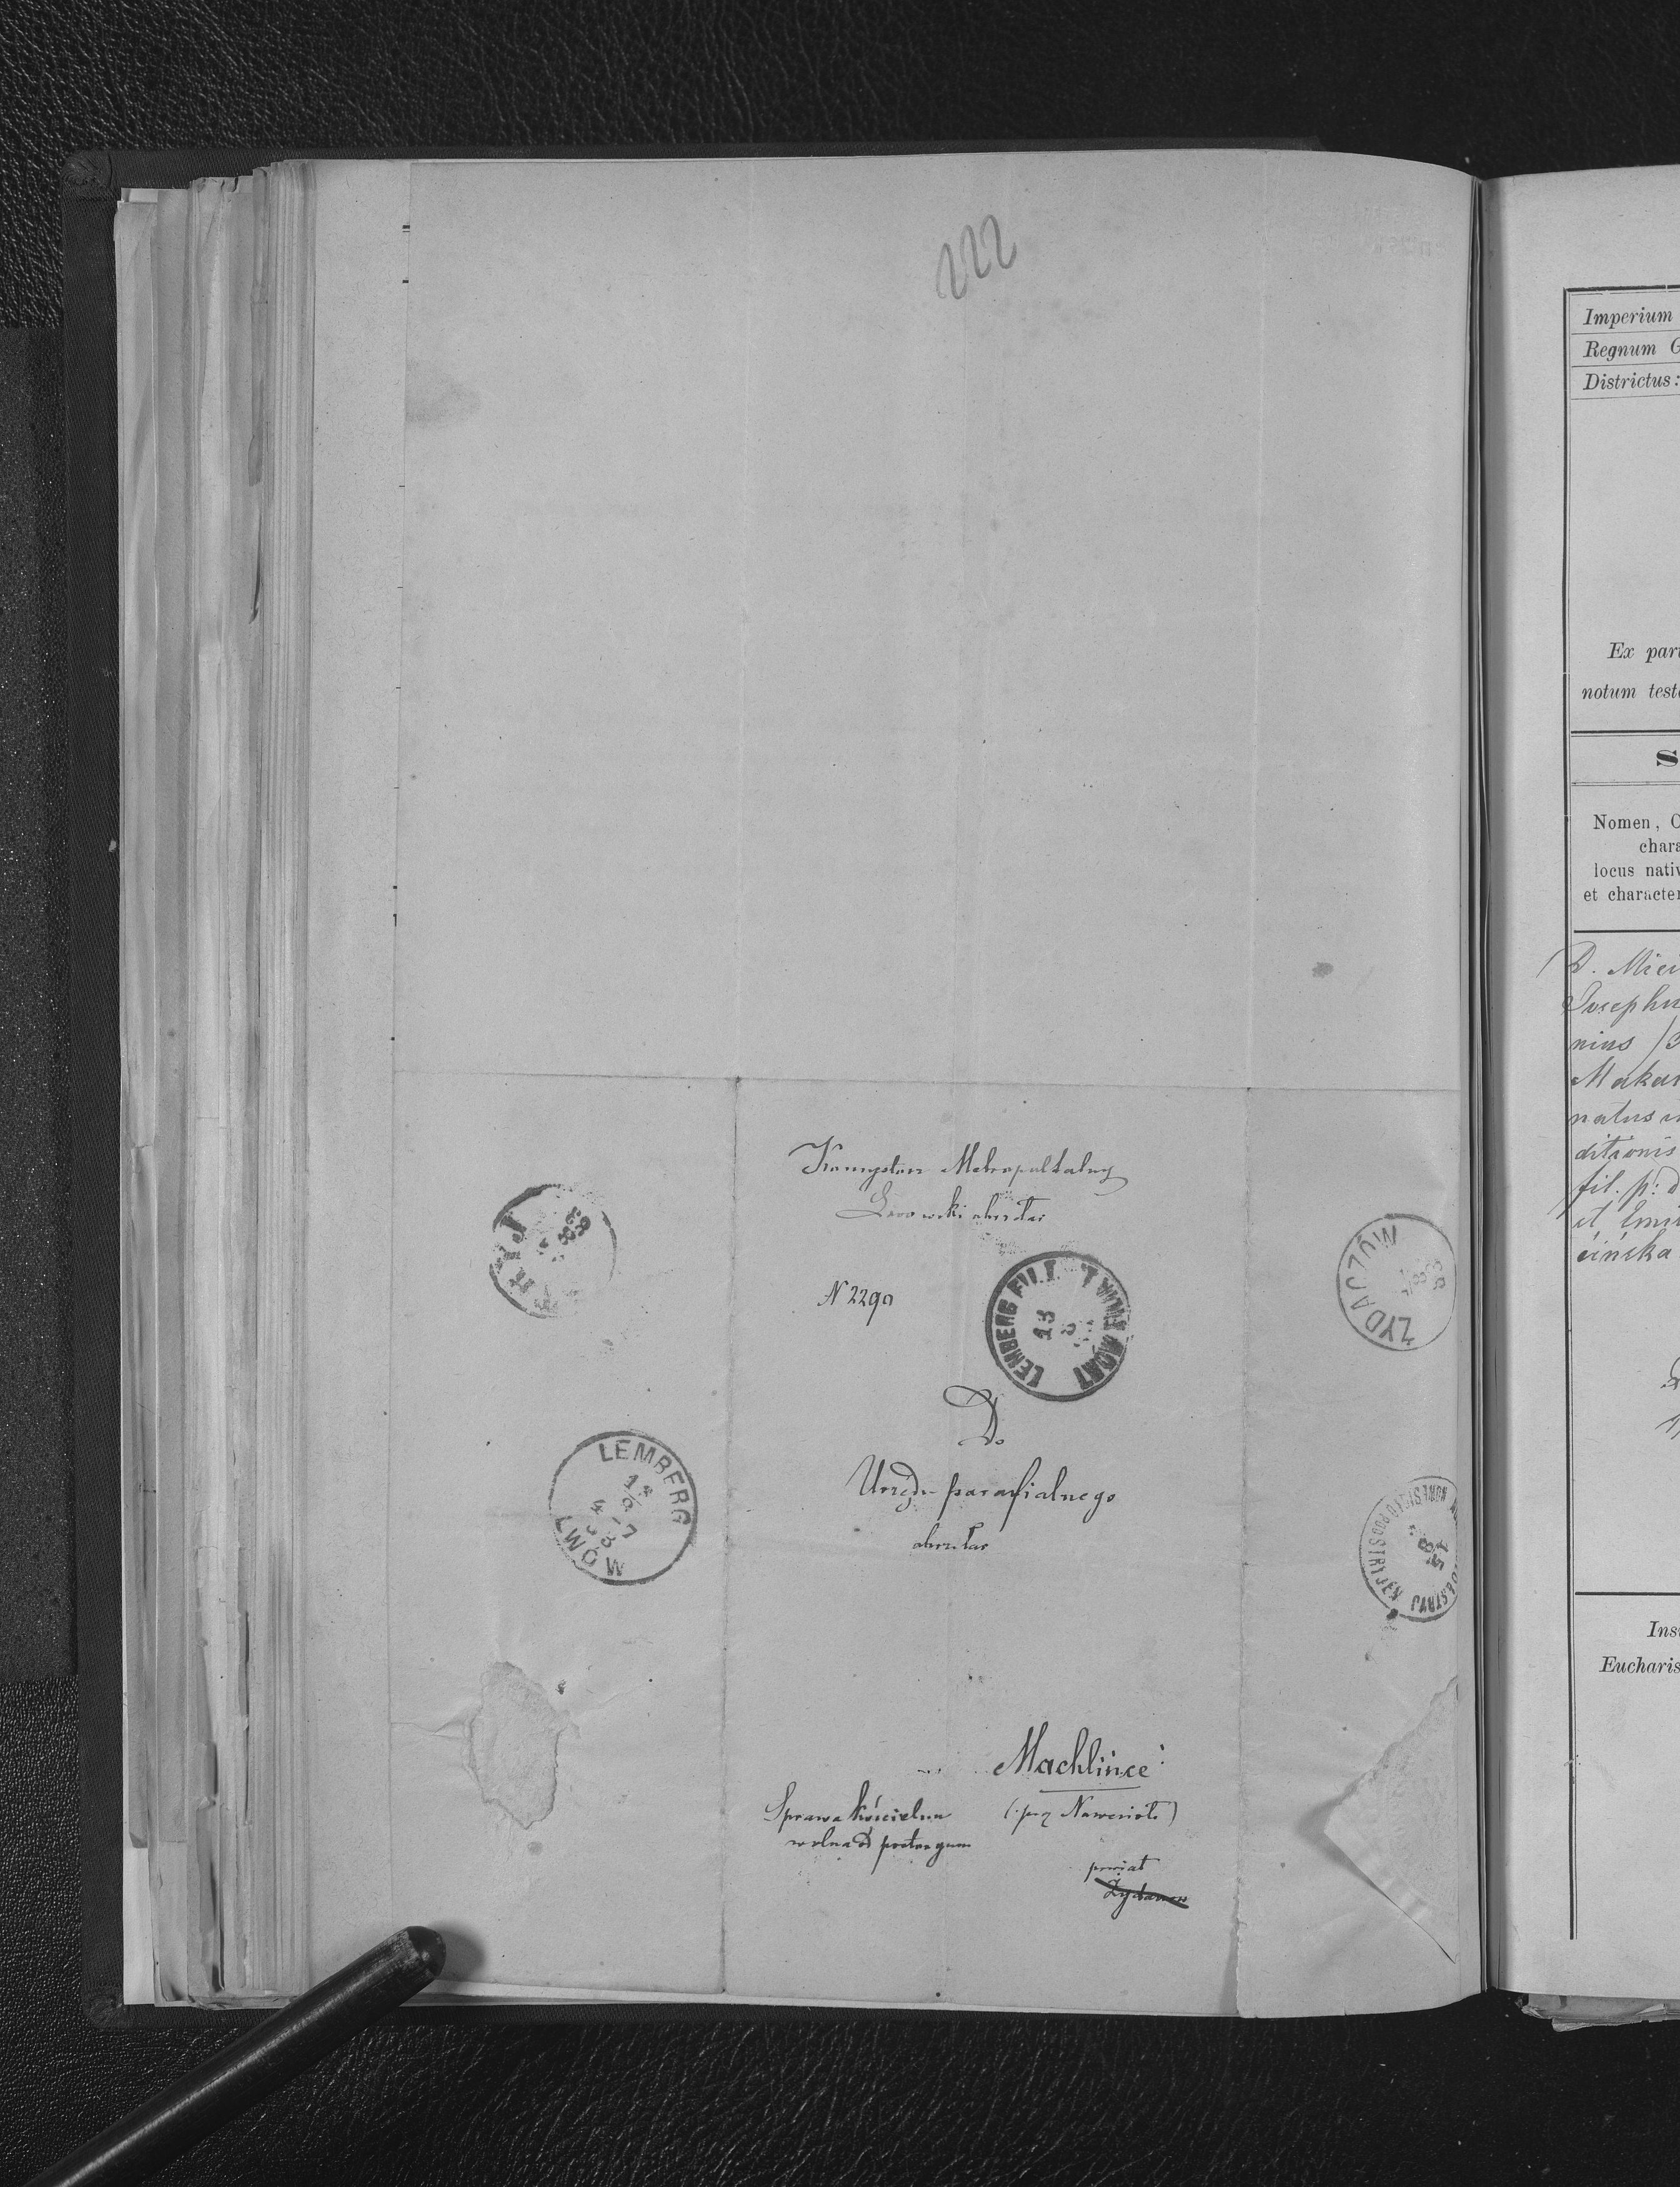 222
Konsystorz Metropolitalny
Lwowski obrz łac
N 2290
LEMBERG FIL
LWÓW FILIA
13
Do
Urzędu parafialnego
obrz łac
STRYJ
LEMBERG
LWÓW
ŻYDACZÓW
STRYJ
Machlińce
(przy Nowesioło)
Sprawa kościelna
wolna od portoryum
powiat
Żydaczów
Imperium
Regnum G
Districtus:
Ex par
notum test
S
Nomen, C
chara
locus nativ
et character
D. Miei
Josephu
nius
Makar
natus
ditionis
fil. p: d
et Emi
cińska
Ins
Eucharis